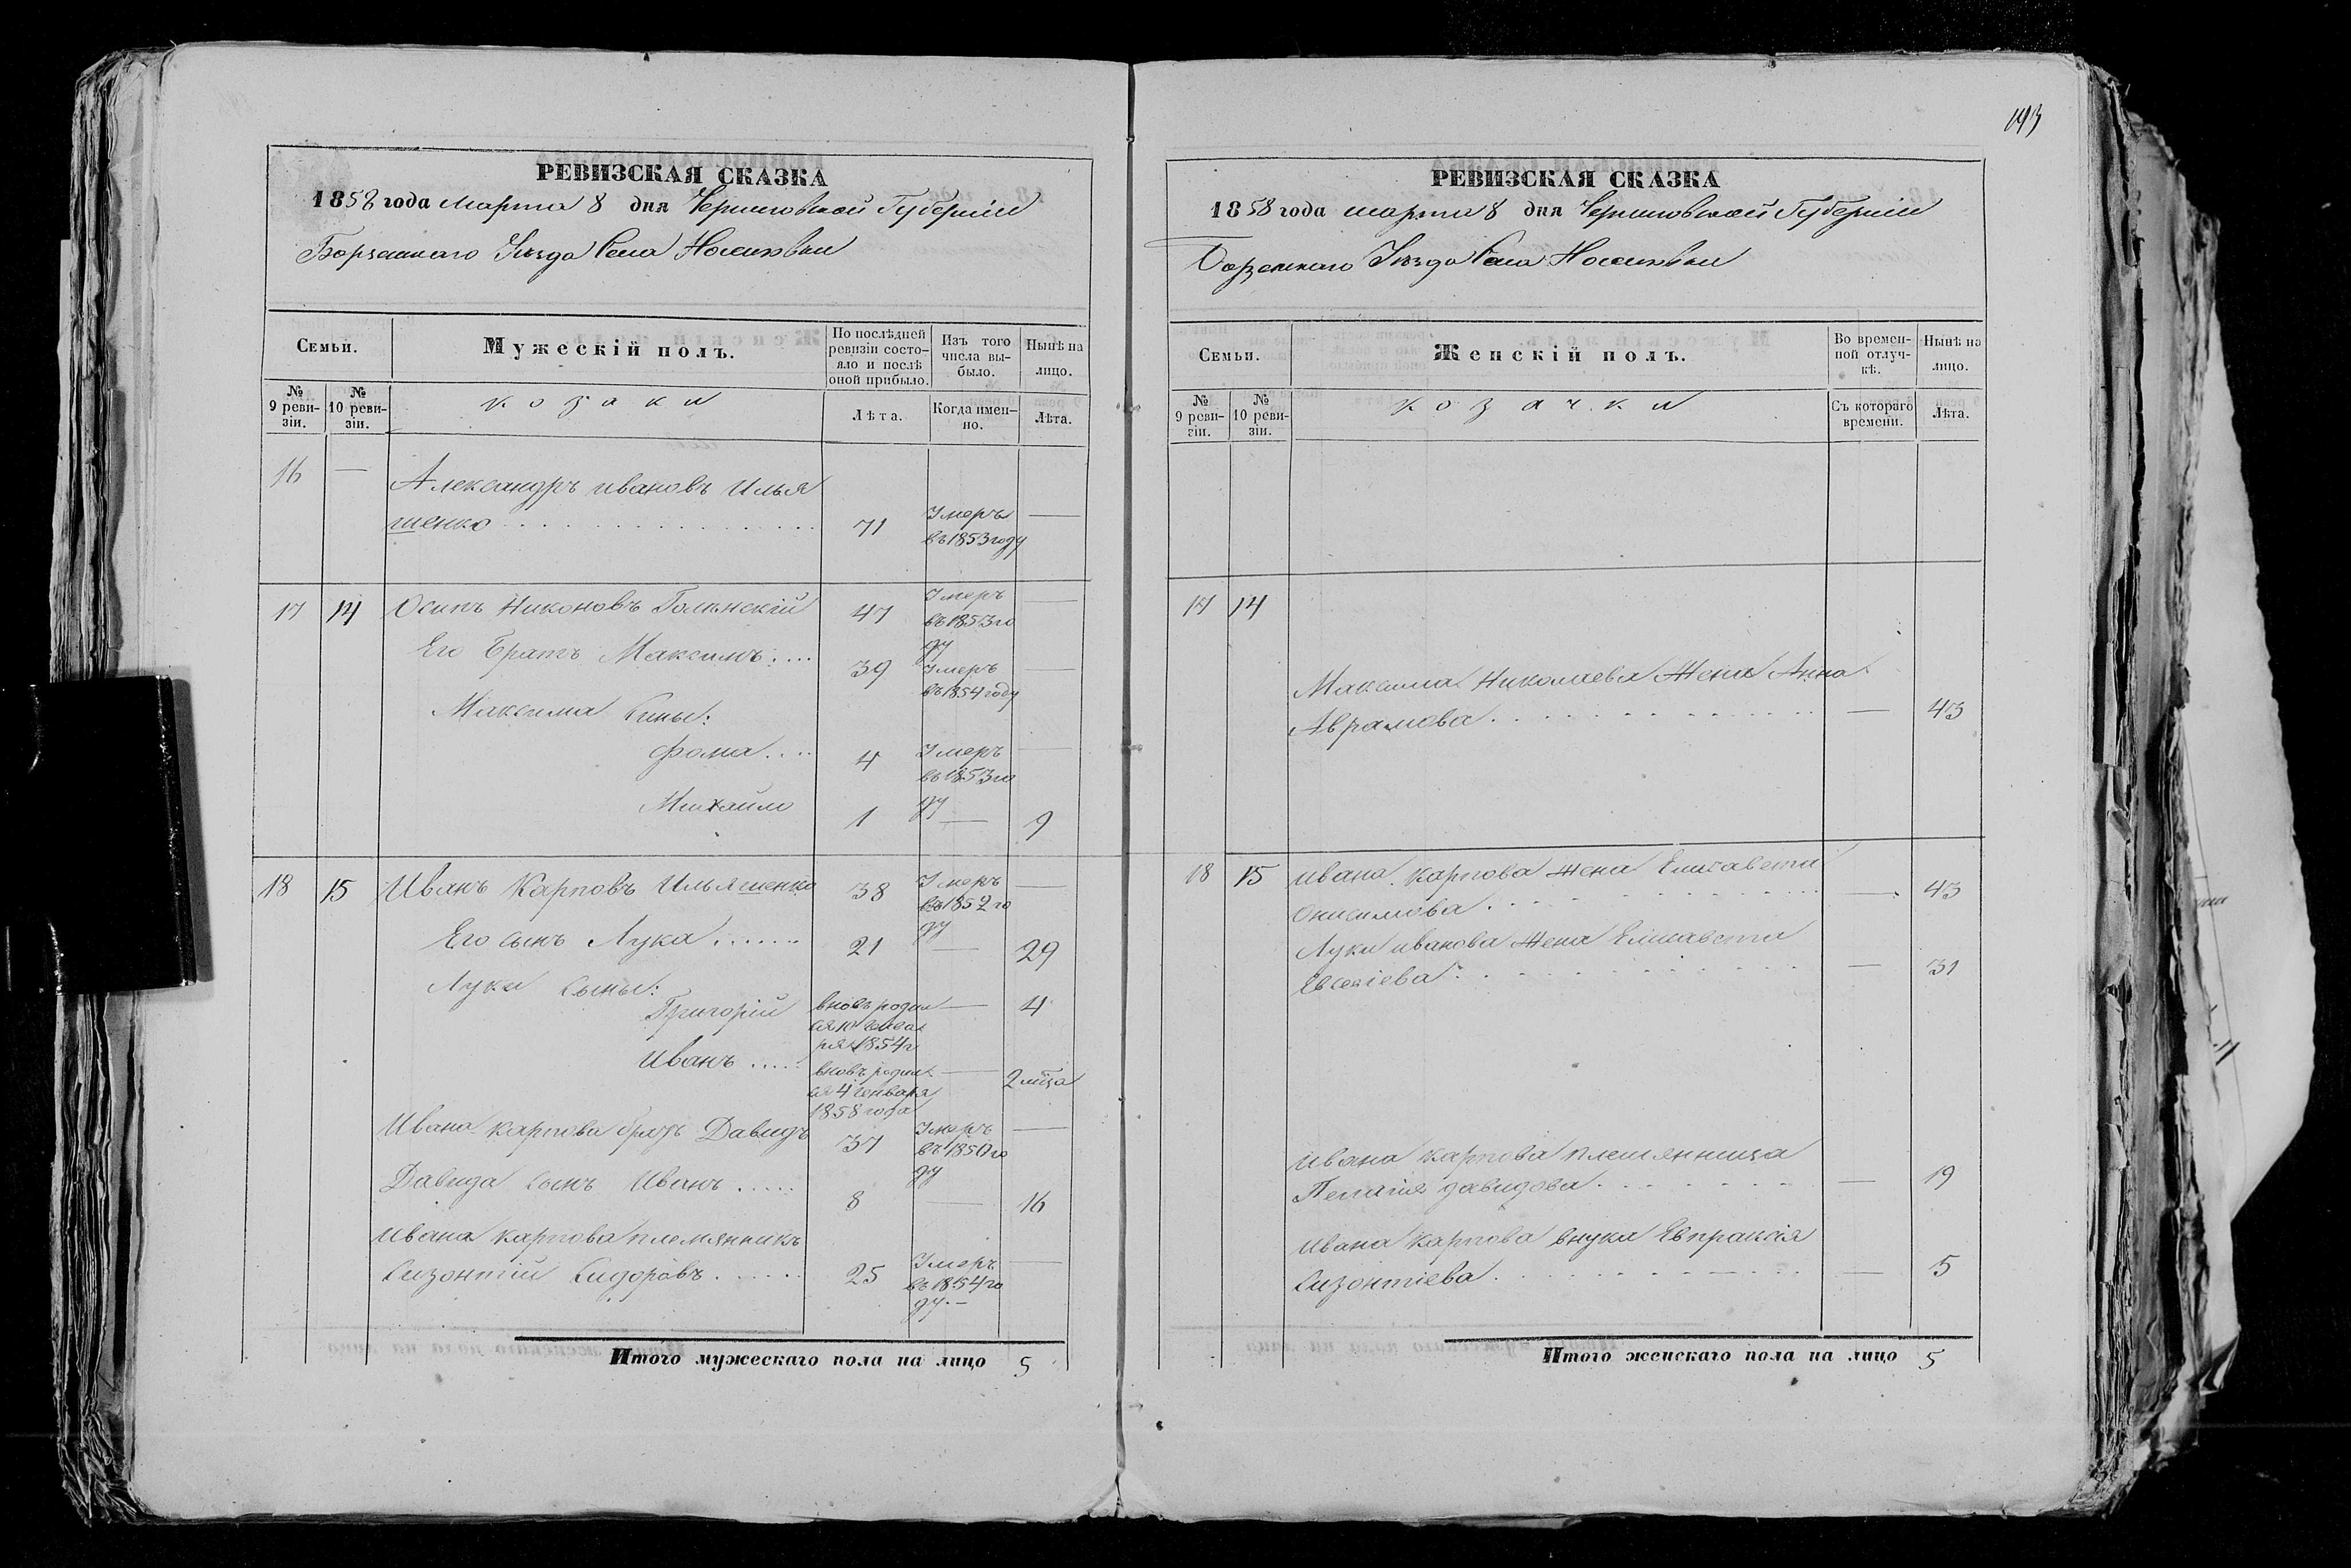 193
РЕВИЗСКАЯ СКАЗКА
1858 года марта 8 дня Черниговской Губерніи
Борзенскаго Уѣзда Села Носиковки
Семьи.
Мужескій полъ.
По послѣдней ревизіи состояло и послѣ оной прибыло.
Изъ того числа выбыло.
Нынѣ на лицо.
№ 9 ревизіи.
№ 10 ревизіи.
козаки
Лѣта.
Когда именно.
Лѣта.
16 — Александръ ивановъ Илья
шенко 71 Умеръ въ 1853 году —
17 14 Осипъ Никоновъ 47 Умеръ въ 1853 году —
Его Братъ Максимъ 39 Умеръ въ 1854 году —
Максима Сины:
Фома 4 Умеръ въ 1853 году —
Михайло 1 — 9
18 15 Иванъ Карповъ Ильяшенко 38 Умеръ въ 1852 году —
Его сынъ Лука 21 — 29
Луки Сыны:
Григорій вновь родил ся 10 генваря 1854 г — 4
Иванъ вновь родил ся 4 генваря 1858 года — 2 мца
Ивана карпова братъ Давидъ 37 Умеръ въ 1850 году —
Давида сынъ Иванъ 8 — 16
Ивана карпова племянникъ
Сизонтій Сидоровъ 25 Умеръ въ 1854 году —
Итого мужескаго пола на лицо 5
РЕВИЗСКАЯ СКАЗКА
1858 года марта 8 дня Черниговской Губерніи
Борзенскаго Уѣзда Села Носиковки
Семьи.
Женскій полъ.
Во временной отлучкѣ.
Нынѣ на лицо.
№ 9 ревизіи.
№ 10 ревизіи.
козачки
Съ котораго времени.
Лѣта.
17 14
Максима Николаева Жена Анна
Аврамова — 43
18 15 Ивана карпова Жена Елисавета
Онисимова — 43
Луки иванова Жена Елисавета
Евсеіева — 31
Ивана карпова племянница
Пелагія давидова — 19
Ивана карпова внука Евпраксія
Сизонтіева — 5
Итого женскаго пола на лицо 5